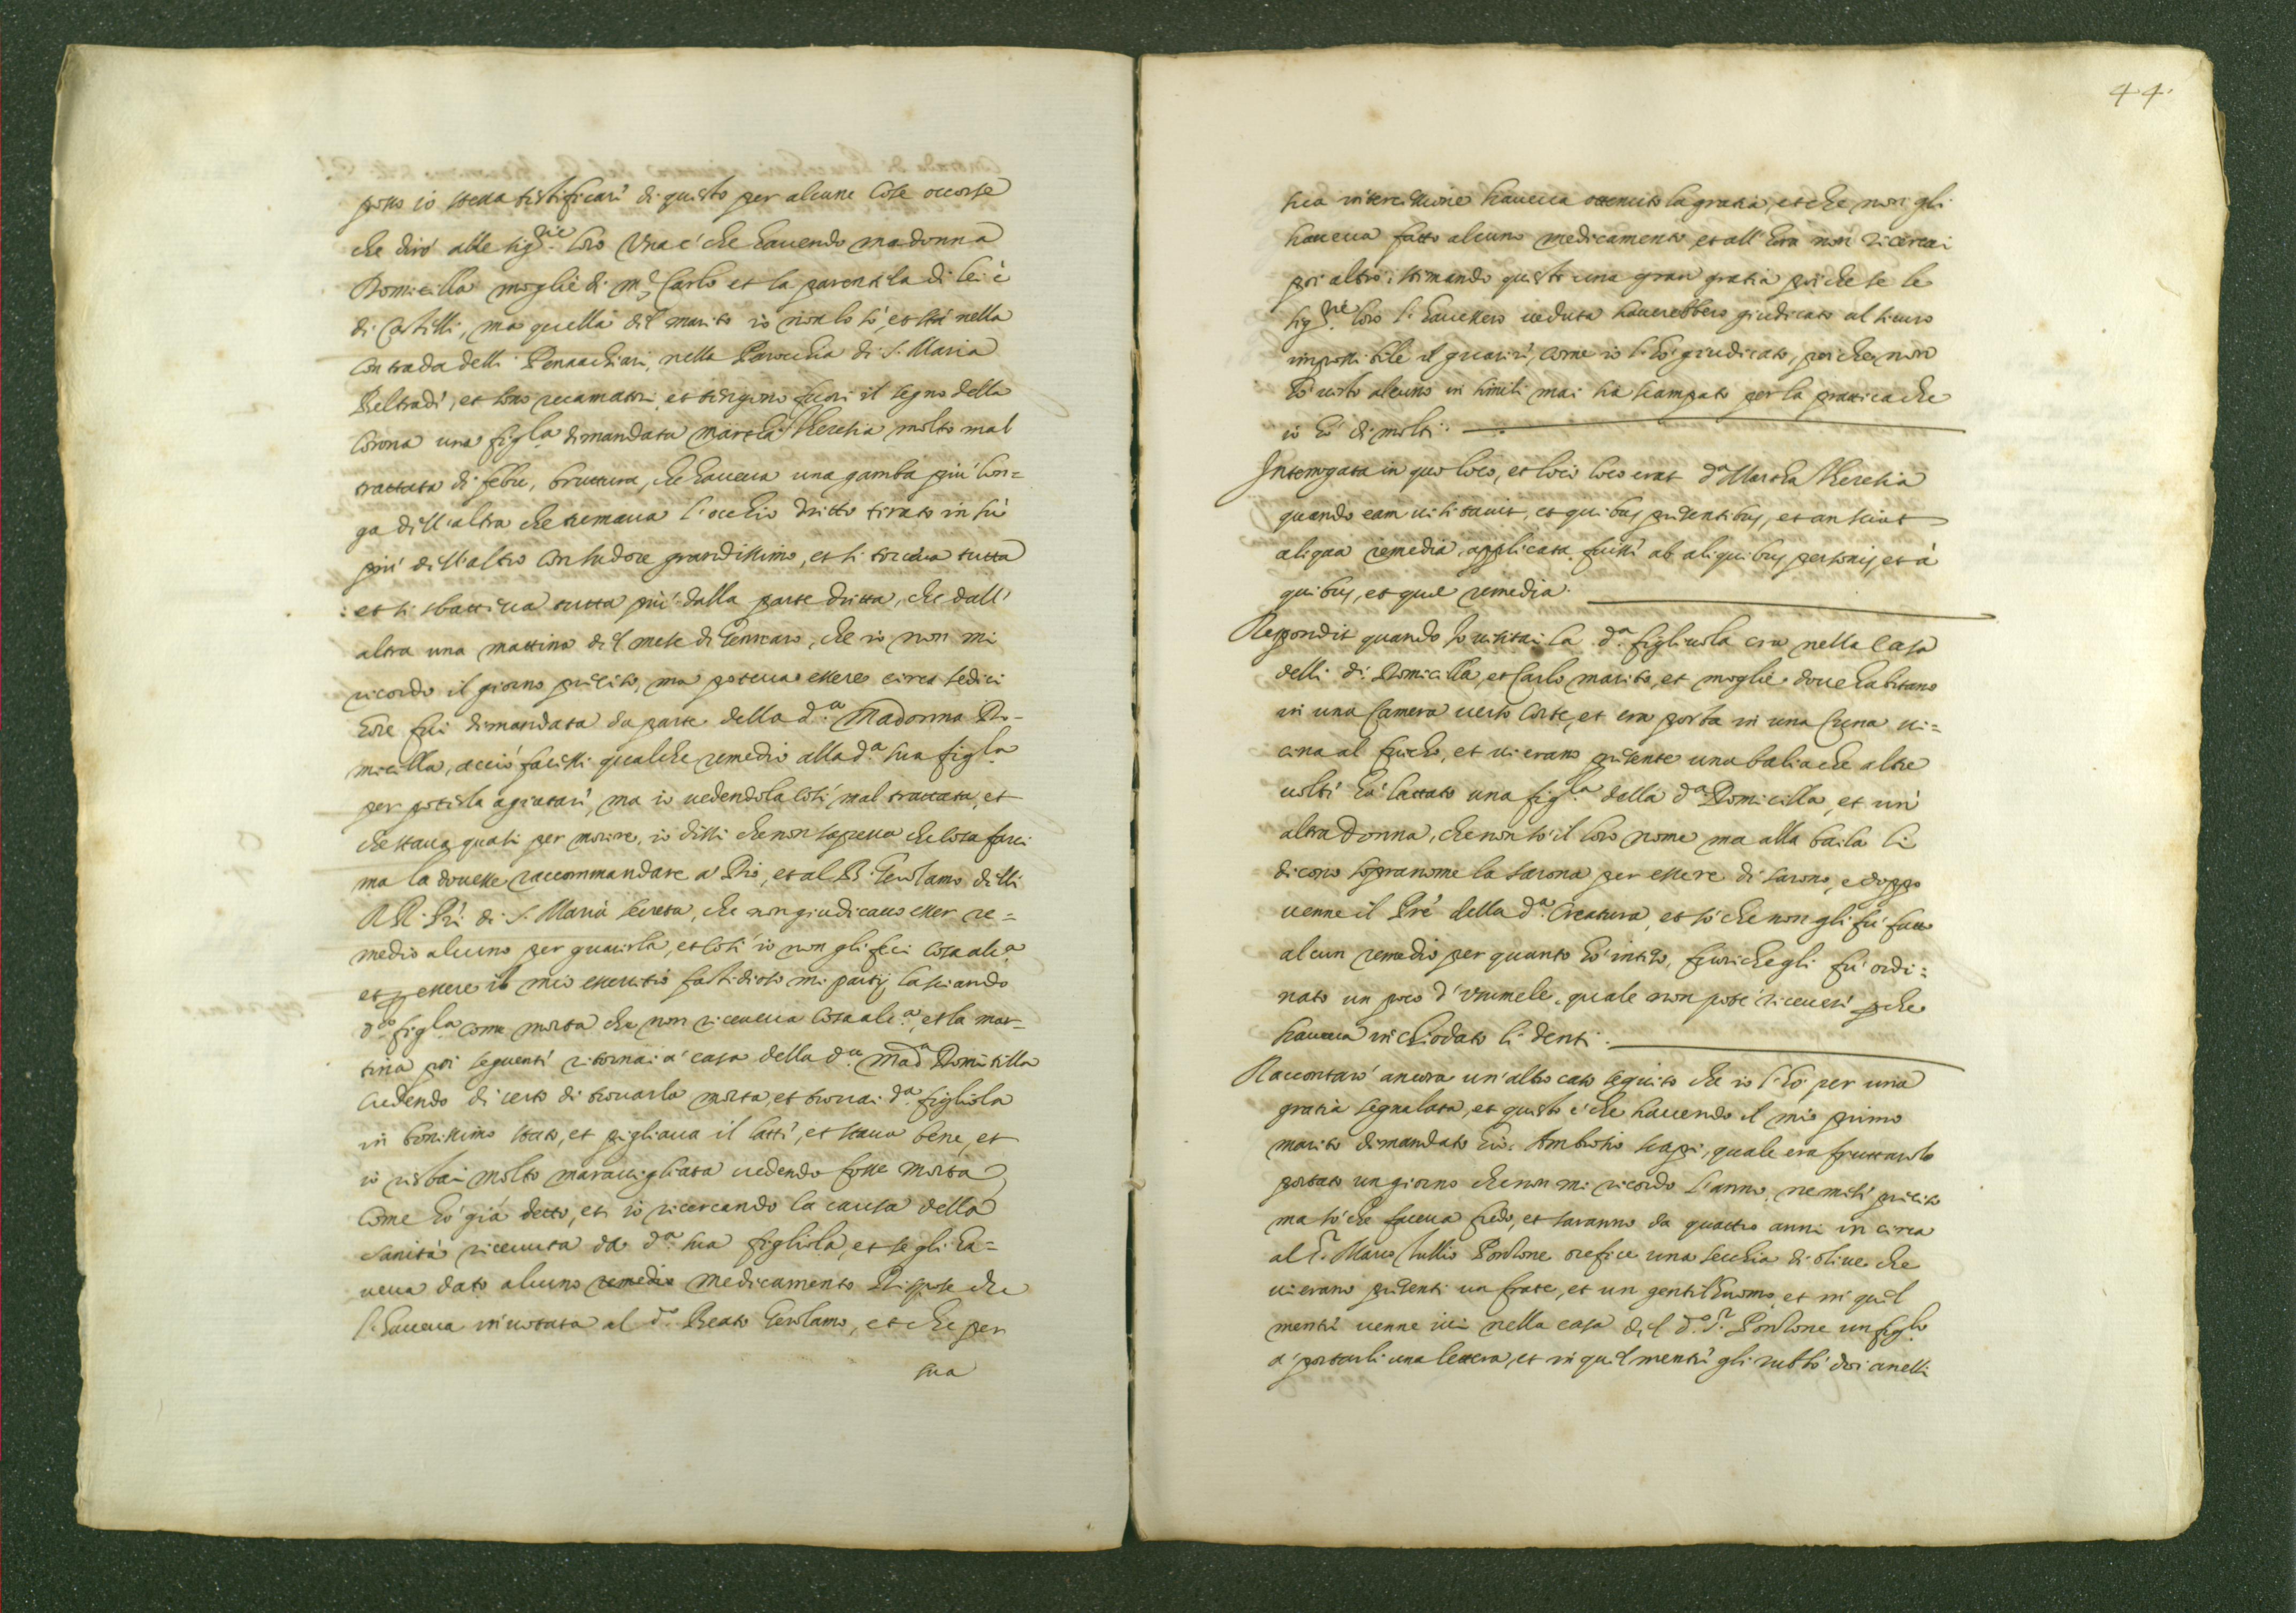 posso io stessa testificare di questo per alcune Cose occorse
che dirò alle sig.rie loro Una è che hauendo madonna
Domicilla moglie di m.r Carlo et la parentela di lei è
di Castelli, ma quella del marito io non lo sò, et stà nella
Contrada delli Pennacchiari, nella Parochia di S. Maria
Beltradi, et sono recamatori et tengono fuori il segno della
Corona una figl.la dimandata Martha Theresia molto mal
trattata di febre, bruttura, che haueua una gamba più lon=
ga dell'altra che tremaua l'occhio dritto tirato in sù
più dell'altro con sudore grandissimo, et si torceua tutta
et si sbatteua tutta più dalla parte dritta, che dall'
altra una mattina del mese di Gennaro, che io non mi
ricordo il giorno preciso, ma poteua essere circa sedici
hore fui dimandata da parte della d.a Madonna Do-
micilla, acciò facessi qualche remedio alla d.a sua figl.la
per poterla agiutare, ma io uedendola così mal trattata, et
che staua quasi per morire, io dissi che non sapeua che cosa farci
ma la douesse raccommandare a Dio, et al B. Gerolamo delli
RR. Pri di S. Maria Secreta, che non giudicauo esser re=
medio alcuno per guarirla, et così io non gli feci cosa alc.a
et p essere il mio essercitio fastidioso mi partij lasciando
d.a figl.la come morta che non riceueua cosa alc.a, et la mat-
tina poi seguente ritornai a casa della d.a Mad.a Domitilla
credendo di certo di trouarla morta, et trouai d.a figliola
in bonissimo stato, et pigliaua il latte, et staua bene, et
io restai molto marauigliata credendo fosse morta
come hò già detto, et io ricercando la causa della
sanità riceuuta da d.a sua figliola, et se gli ha=
ueua dato alcuno remedio medicamento Rispose che
l'haueua inuotata al d.o Beato Gerolamo, et che per
sua
44
sua intercessione haueua ottenuto la gratia, et che non gli
haueua fatto alcuno medicamento et all'hora non ricercai
poi altro, stimando questo una gran gratia poiche se le
sig.rie loro l'hauessero ueduta hauerebbero giudicato al sicuro
impossibile il guarire, come io l'hò giudicato, poiche non
hò uisto alcuno in simili mai ha scampato per la prattica che
io hò di molti.
Interrogata in quo loco, et loci loco erat d.a Martha Theresia
quando eam uisitauit, et quibus presentibus, et an sciat
aliqua remedia applicata fuisse ab aliquibus personis, et à
quibus, et quae remedia.
Respondit quando Io uisitai la d.a figliuola era nella Casa
delli di Domicilla, et Carlo marito, et moglie doue habitano
in una Camera uerso Corte, et era posta in una Cuna ui=
cina al fuocho, et ui erano presente una balia che altre
uolte hà lattato una figl.la della d.a Domicilla, et un'
altra Donna, che non sò il loro nome ma alla baila li
dicono sopranome la sarona per essere di sarono, e doppo
uenne il Pre della d.a Creatura, et sò che non gli fù fatto
alcun remedio per quanto hò inteso, fuori che gli fù ordi=
nato un poco d'Vrumele, quale non potè riceuere pche
haueua inchiodato li denti.
Raccontarò ancora un'altro caso seguito che io l'hò per una
gratia segnalata, et questo è che hauendo il mio primo
marito dimandato Gio: Ambrosio scapi, quale era fruttarolo
portato un giorno che non mi ricordo l'anno, ne mese preciso
ma sò che faceua fredo, et saranno da quattro anni in circa
al S.r Marco Tullio Pordone orefice una secchia di oliue che
ui erano presenti un frate, et un gentil'huomo et in quel
mentre uenne iui nella casa del d.o S.r Pordone un figl.lo
a portarli una lettera, et in quel mentre gli rubbò doi anelli